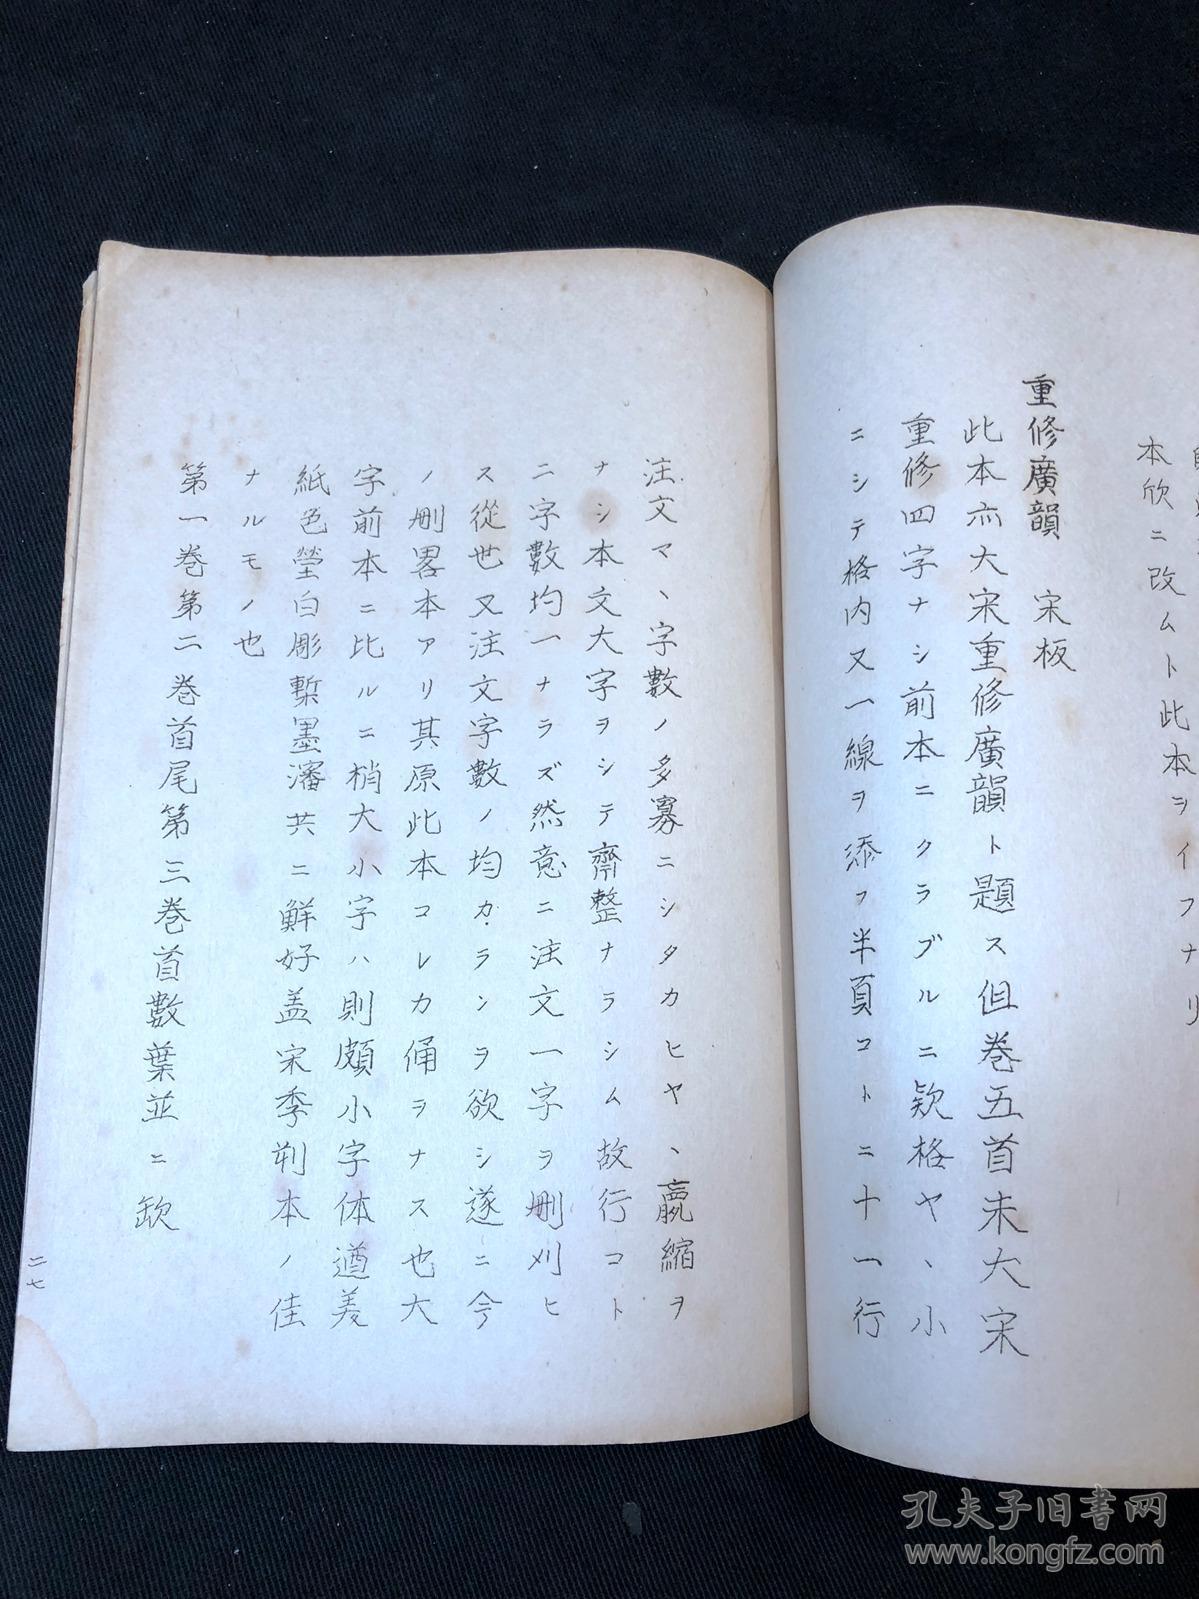 本欣ニ改ムト此本ヲイフナリ
重修廣韻　宋板
此本亦大宋重修廣韻ト題ス但巻五首未大宋
重修四字ナシ前本ニクラブルニ欵格ヤヽ小
ニシテ格内又一線ヲ添フ半頁コトニ十一行
注文マヽ字數ノ多寡ニシタカヒヤヽ嬴縮ヲ
ナシ本文大字ヲシテ齋整ナラシム故行コト
ニ字數均一ナラズ然意ニ注文一字ヲ刪刈ヒ
ス從世又注文字數ノ均カラランヲ欲シ遂ニ今
ノ刪畧本アリ其原此本コレカ俑ヲナス也大
字前本ニ比ルニ梢大小字ハ則頗小字体遒美
紙色瑩白彫槧墨瀋共ニ鮮好盖宋季刋本ノ佳
ナルモノ也
第一巻第二巻首尾第三巻首數葉並ニ欽
二七
孔夫子旧書网
www.kongfz.com